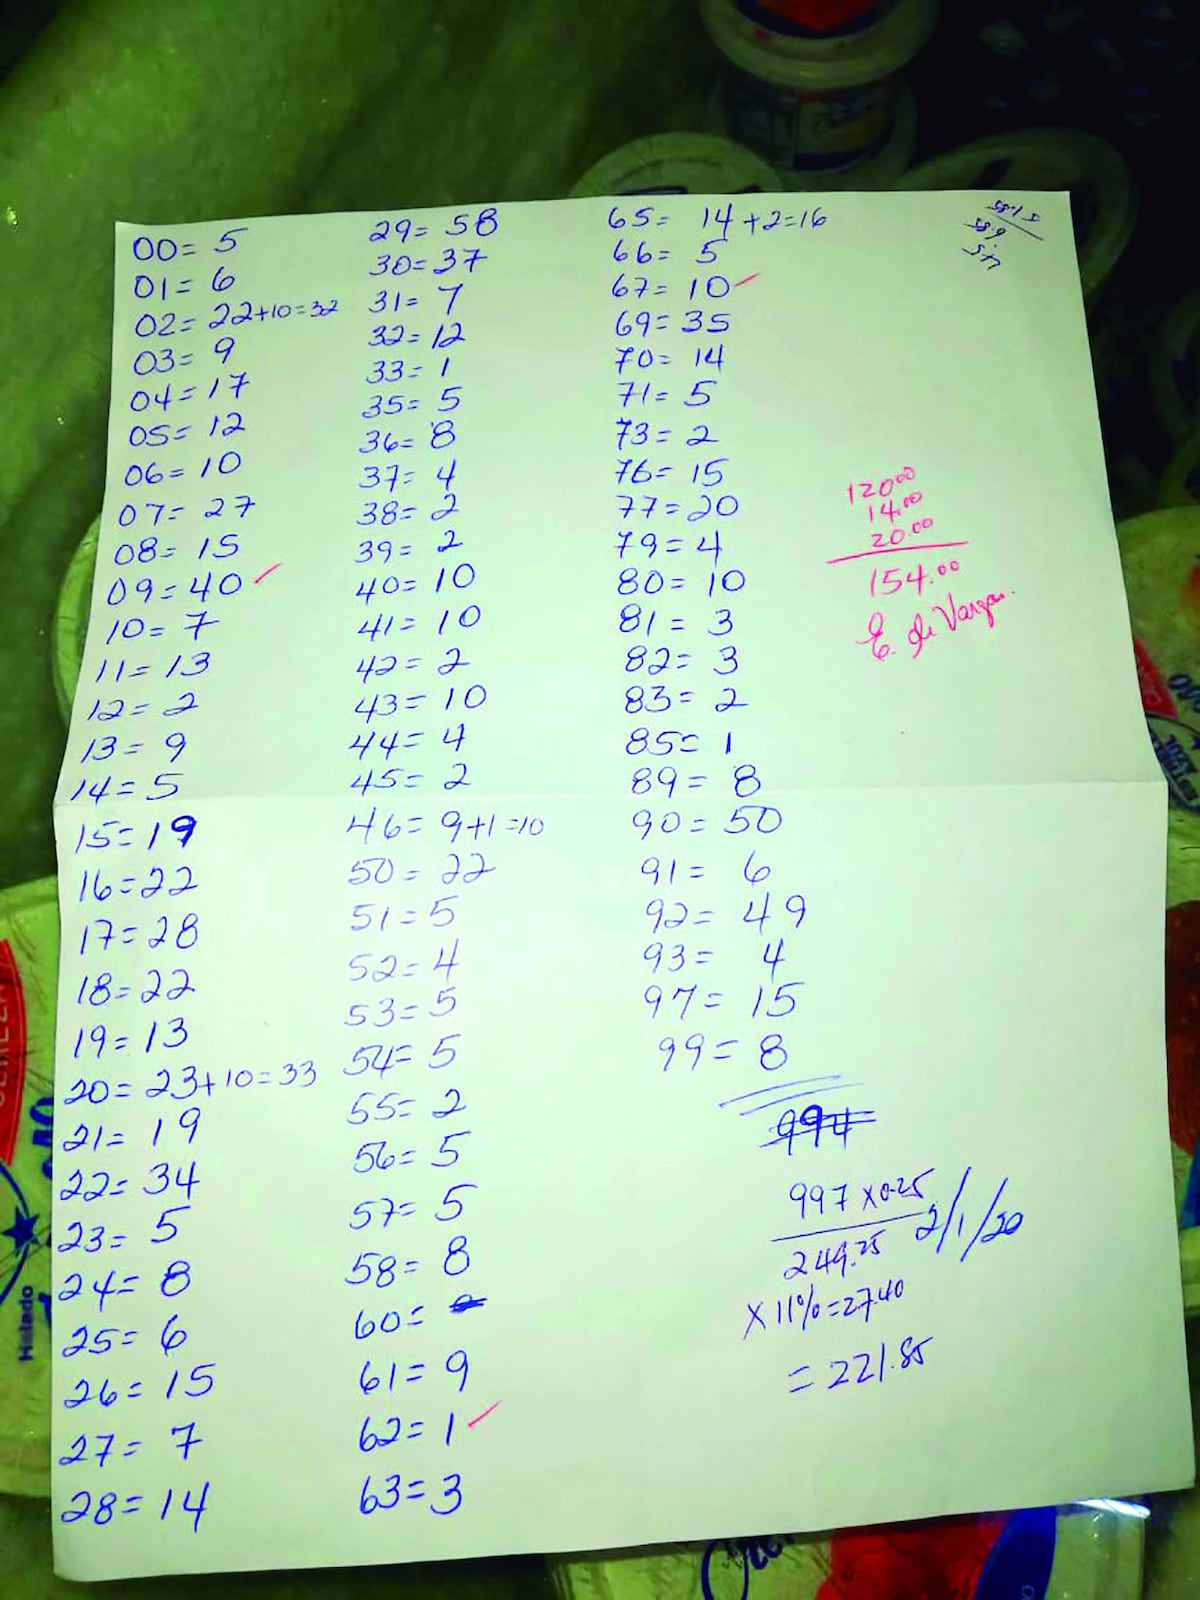 00= 5
01= 6
02= 22+10=32
03= 9
04= 17
05= 12
06= 10
07= 27
08= 15
09= 40
10= 7
11= 13
12= 2
13= 9
14= 5
15= 19
16= 22
17= 28
18= 22
19= 13
20= 23+10=33
21= 19
22= 34
23= 5
24= 8
25= 6
26= 15
27= 7
28= 14
29= 58
30= 37
31= 7
32= 12
33= 1
35= 5
36= 8
37= 4
38= 2
39= 2
40= 10
41= 10
42= 2
43= 10
44= 4
45= 2
46= 9+1=10
50= 22
51= 5
52= 4
53= 5
54= 5
55= 2
56= 5
57= 5
58= 8
60=
61= 9
62= 1
63= 3
65= 14+2=16
66= 5
67= 10
69= 35
70= 14
71= 5
73= 2
76= 15
77= 20
79= 4
80= 10
81= 3
82= 3
83= 2
85= 1
89= 8
90= 50
91= 6
92= 49
93= 4
97= 15
99= 8
994
997 x0.25
249.25
2/1/20
x 11%=27.40
= 221.85
120.00
14.00
20.00
154.00
E. de Vargas.
Helado